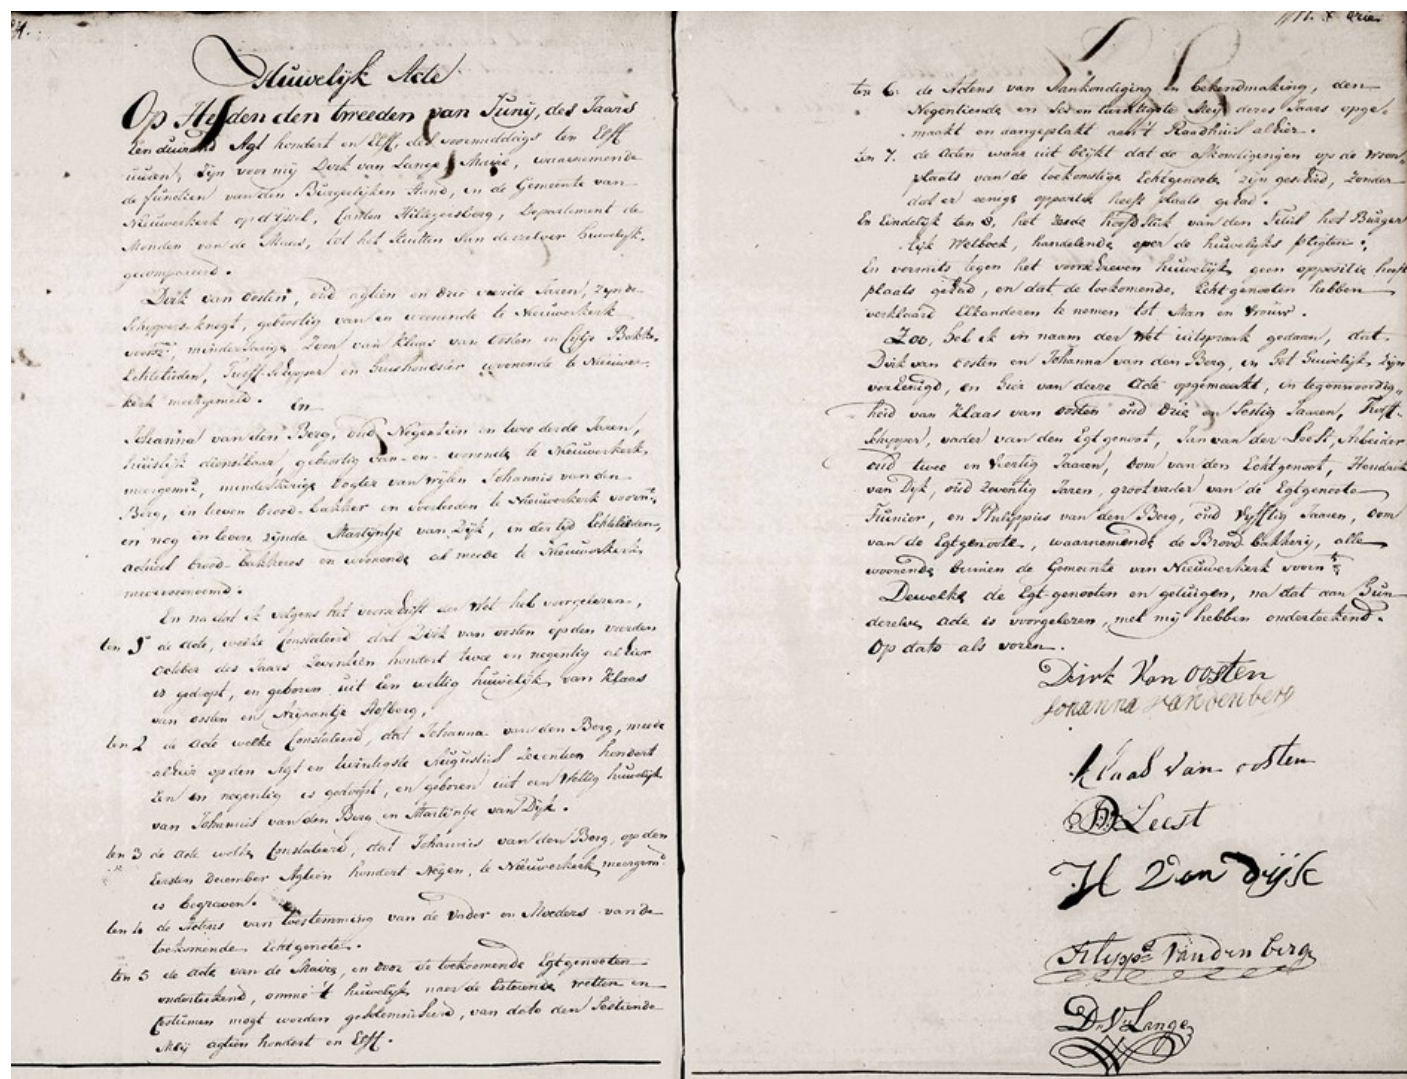 Huwelijk Acte
Op Heden den tweeden van Junij, des Jaars
Een duizend Agt hondert en Elff, des voormiddags ten Elff
uuren, Zijn voor mij Dirk van Lange Maire, waarnemende
de functien van den Burgerlijken Stand, in de Gemeente van
Nieuwerkerk op d'ijssel, Canton Hillegersberg, Departement de
Monden van de Maas, tot het sluiten van deszelver huwelijk,
gecompareerd.
Dirk van oosten, oud agtien en drie vierde Jaren, zynde
Schippers-knegt, gebortig van en woonende te Nieuwerkerk
voorsz. minderjarige Zoon van Klaas van oosten en
Echtelieden, Turff-schipper en Huishoudster woonende te Nieuwer-
kerk meergemeld.
en
Johanna van den Berg, oud Negentien en twee derde Jaren,
huislijk dienstbaar, gebortig van en woonende te Nieuwerkerk
meergem., minderjarige Dogter van wijlen Johannis van den
Berg, in leven brood-bakker en overleeden te Nieuwerkerk voorn.
en nog in leven zijnde Martijntje van Dijk, in der tijd Echtelieden,
actueel brood-bakkeres en woonende al mede te Nieuwerkerk
meervoornoemd.
En na dat ik volgens het voorschrift der Wet heb voorgelezen,
ten 1 de acte, welke Constateerd dat Dirk van oosten op den vierden
October des Jaars Zeventien hondert twee en negentig alhier
is gedoopt, en geboren uit Een wettig huwelijk van Klaas
van oosten en Stofberg,
ten 2 de acte welke Constateerd, dat Johanna van den Berg, mede
alhier op den Agt en twintigste Augustus Zeventien hondert
Een en negentig is gedoopt, en geboren uit een Wettig huwelijk
van Johannis van den Berg en Martijntje van Dijk.
ten 3 de acte welke Constateerd, dat Johannis van den Berg, op den
Eersten December Agtien hondert Negen, te Nieuwerkerk meergem.
is begraven.
ten 4 de Actens van toestemming van de Vader en Moeders van de
toekomende Echtgenote.
ten 5 de acte van de Maire, en door de toekoomende Egtgenooten
onderteekend, omme 't huwelijk naar de Esteerende wetten en
Costumen mogt worden gesolemniseerd, van dato den Sestiende
Meij agtien hondert en Elff.
ten 6. de Actens van Aankondiging en bekendmaking, den
Negentiende en Ses en twintigste Meij dezes Jaars opge-
maakt en aangeplakt aan't Raadhuis alhier.
ten 7. de Acten waar uit blijkt dat de afkondigingen op de woon-
plaats van de toekomstige Echtgenoote zijn geschied, zonder
dat er eenige oppositie heeft plaats gehad.
En Eindelijk ten 8, het zesde hoofdstuk van den Titul het Burger
lijk Wetboek, handelende over de huwelijks pligten.
En vermits tegen het voorschreven huwelijk geen oppositie heeft
plaats gehad, en dat de toekomende Echtgenooten hebben
verklaard Elkanderen te nemen tot Man en Vrouw.
Zoo, heb ik in naam der Wet uitspraak gedaan, dat
Dirk van oosten en Johanna van den Berg, in Het Huwelijk zijn
vereenigd, en hier van deeze Acte opgemaakt, in tegenwoordig-
heid van Klaas van oosten oud drie en Sestig Jaaren, Turff-
schipper, vader van den Egtgenoot, Jan van der Leest, Arbeider
oud twee en Veertig Jaaren, oom van den Echtgenoot, Hendrik
van Dijk, oud Zeventig Jaren, grootvader van de Egtgenoote
en Philippies van den Berg, oud Vijfftig Jaaren, oom
van de Egtgenoote, waarnemende de Brood-bakkerij, alle
woonende binnen de Gemeente van Nieuwerkerk voorn.
Dewelke de Egt-genooten en getuigen, na dat aan Hun
derzelve acte is voorgelezen, met mij hebben onderteekend.
Op dato als voren.
Dirk Van oosten
Johanna van den berg
Klaas van oosten
Leest
H Van dijk
van den berg
D. V. Lange